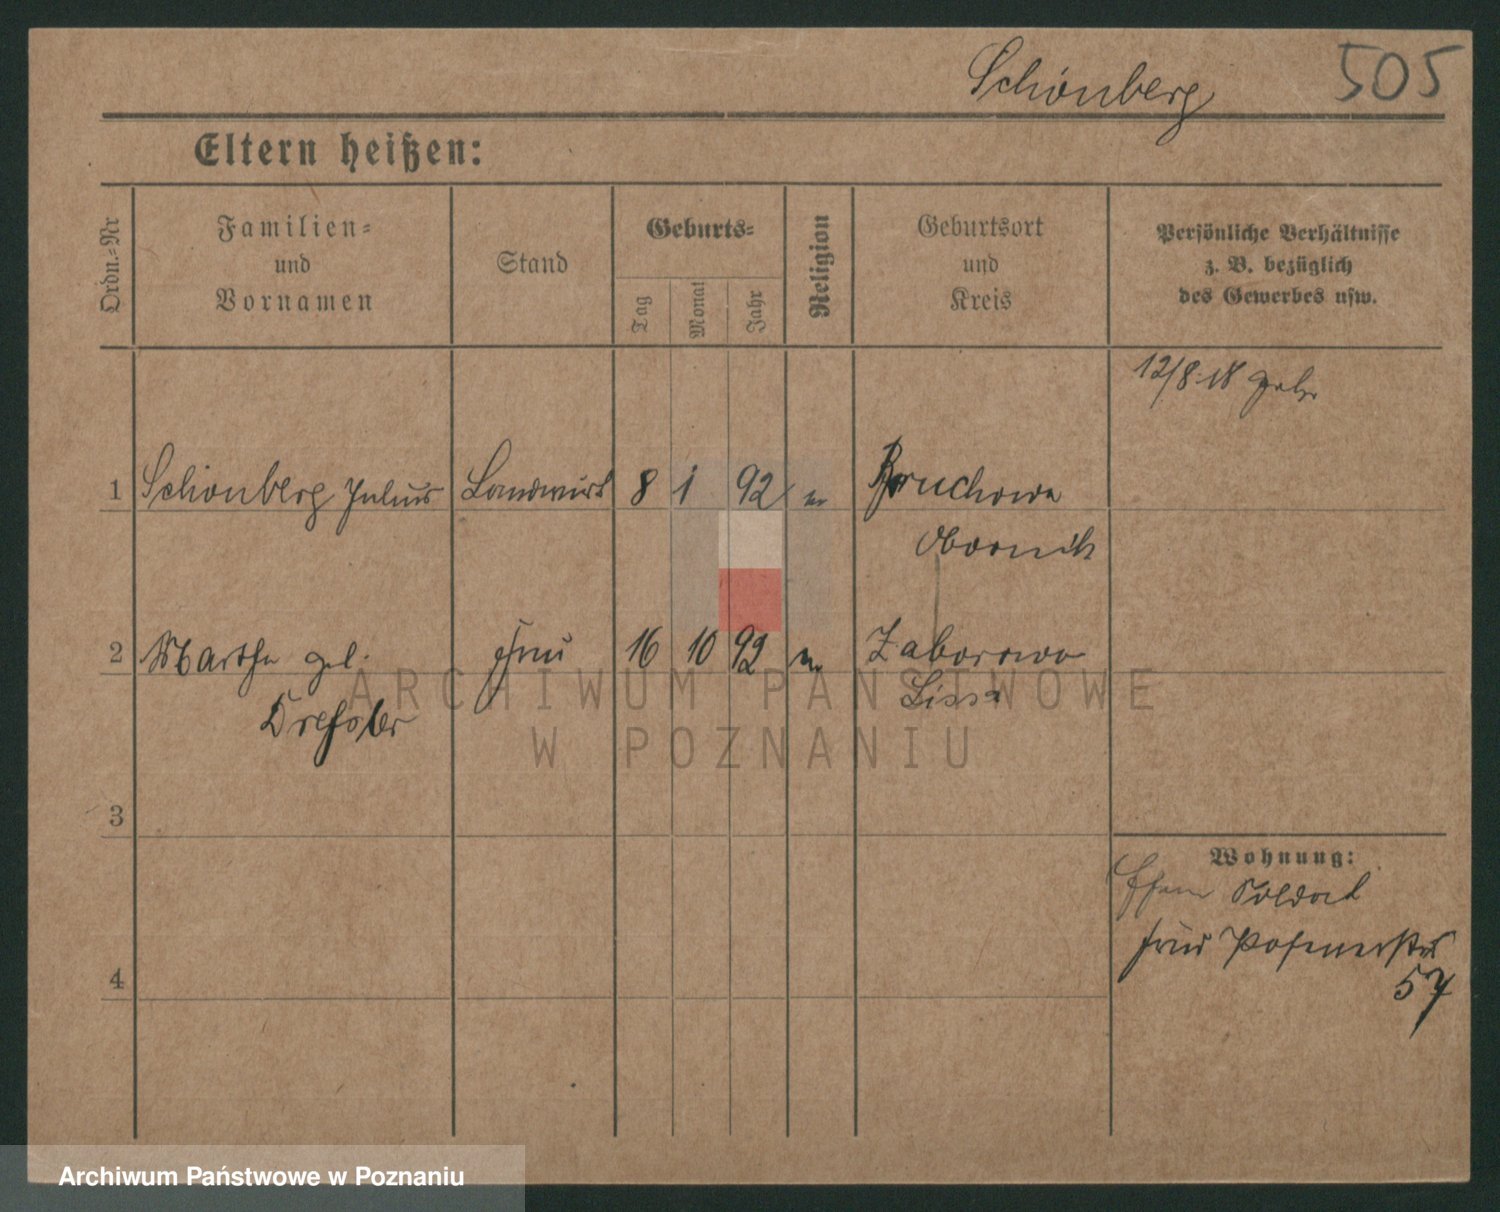 Schönberg 505
Eltern heißen:
Ordn.-Nr
Familien-
und
Vornamen
Stand
Geburts-
Tag
Monat
Jahr
Religion
Geburtsort
und
Kreis
Persönliche Verhältnisse
z. B. bezüglich
des Gewerbes usw.
12/8.18
1 Schönberg Julius Landwirt 8 1 92
Obornik
2 Martha geb. Frau 16 10 92 Zaborowo
Lissa
3
4
Wohnung:
Soldat
Frau Posenerstr
57
ARCHIWUM PAŃSTWOWE
W POZNANIU
Archiwum Państwowe w Poznaniu